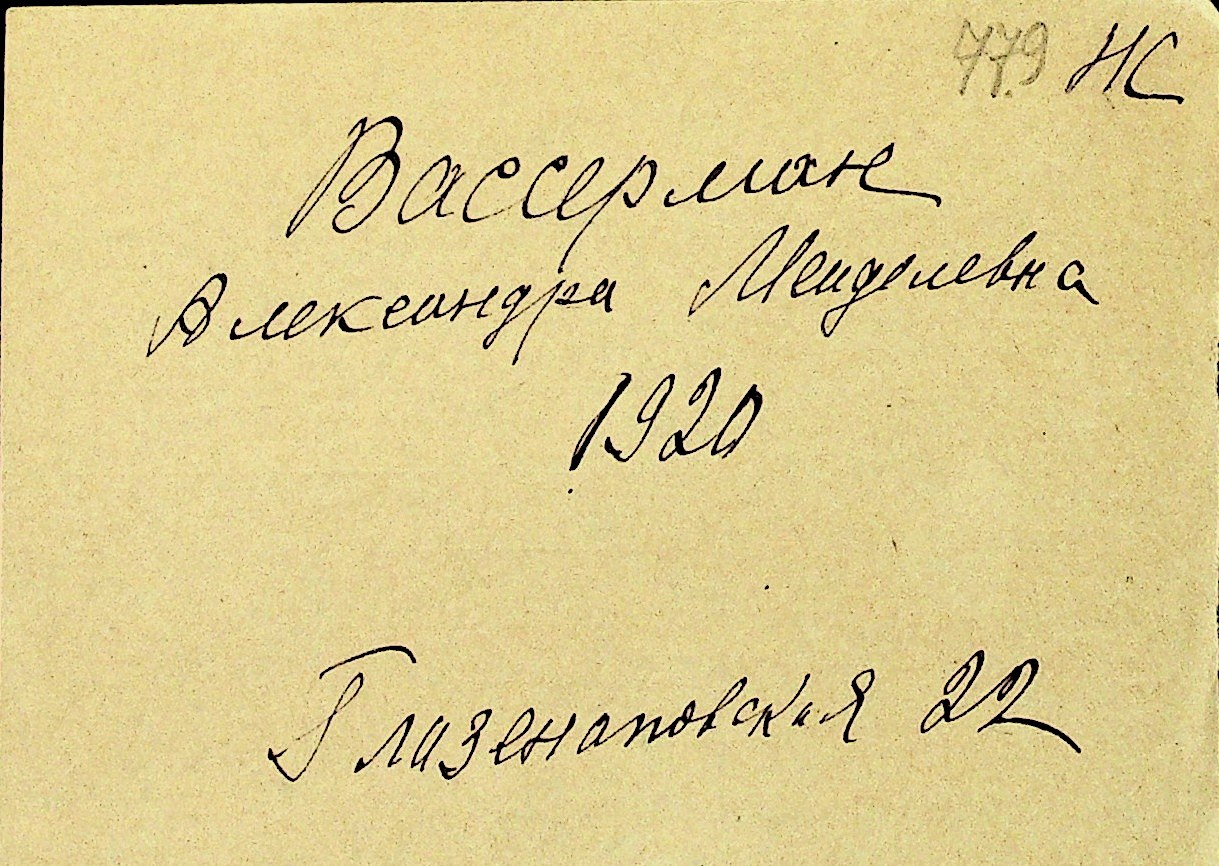 779 НС
Вассерман
Александра Менделевна
1920
Глазенаповская 22